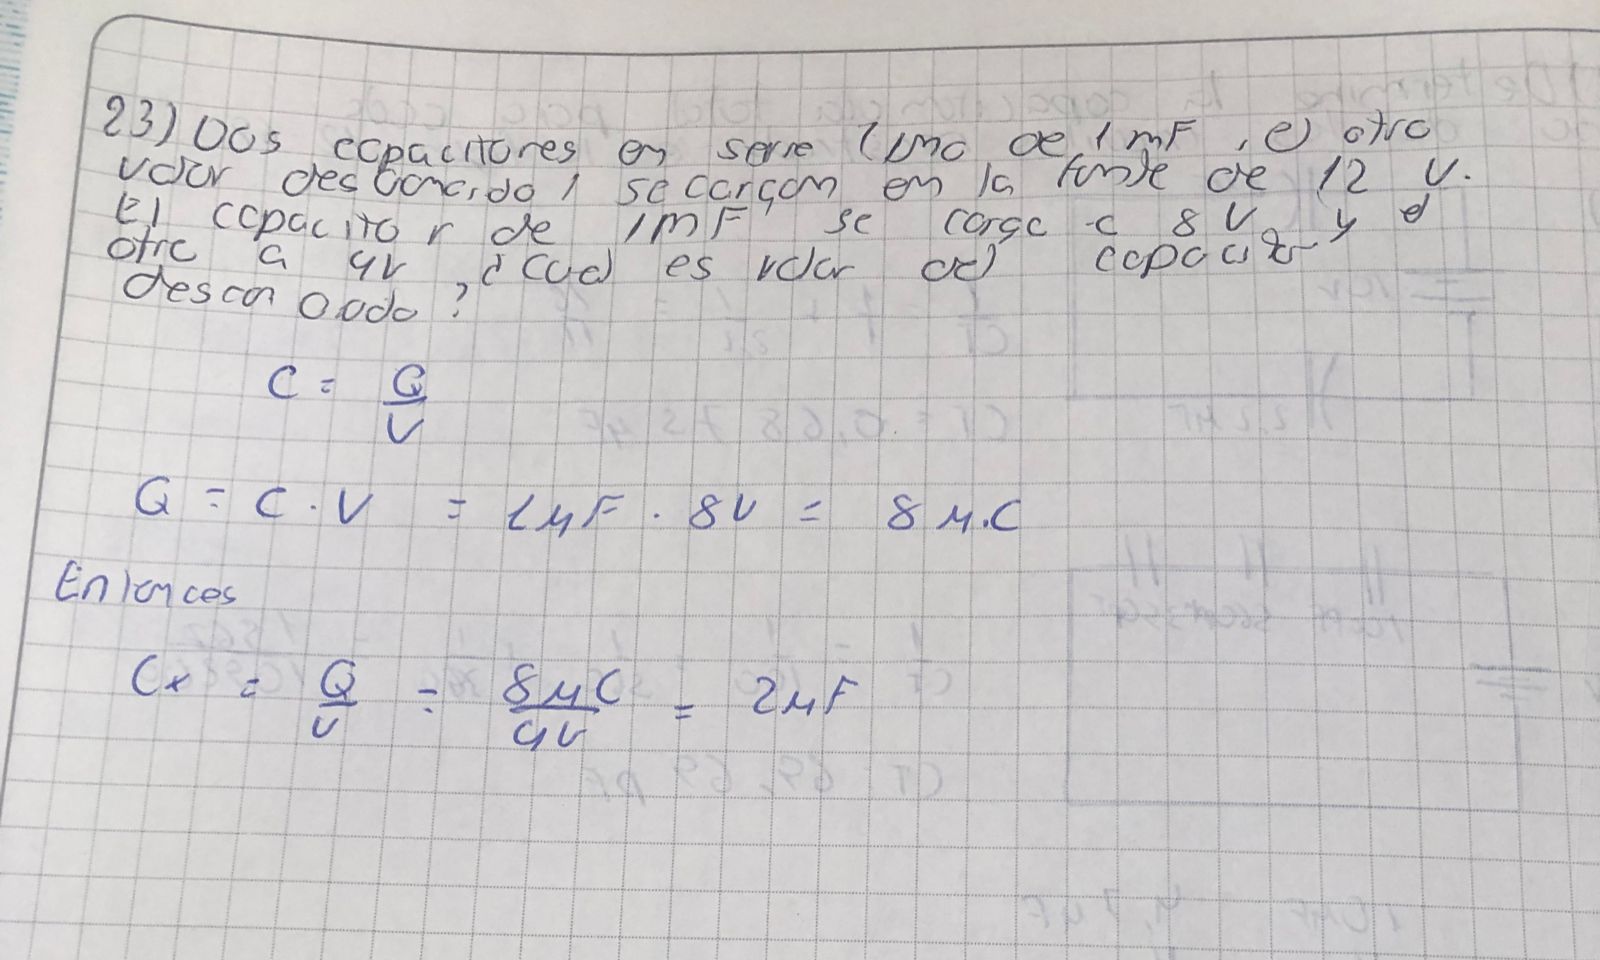 23) Dos capacitores en serie (uno de 1 mF, el otro
valor desconocido) se cargan en la fuente de 12 V.
El capacitor de 1mF se carga a 8 V y el
otro a 4V, ¿cual es valor del capacitor
desconocido?
C = Q/V
Q = C . V = 1μF . 8V = 8 μ.C
Entonces
Cx = Q/V = 8μC/4V = 2μF